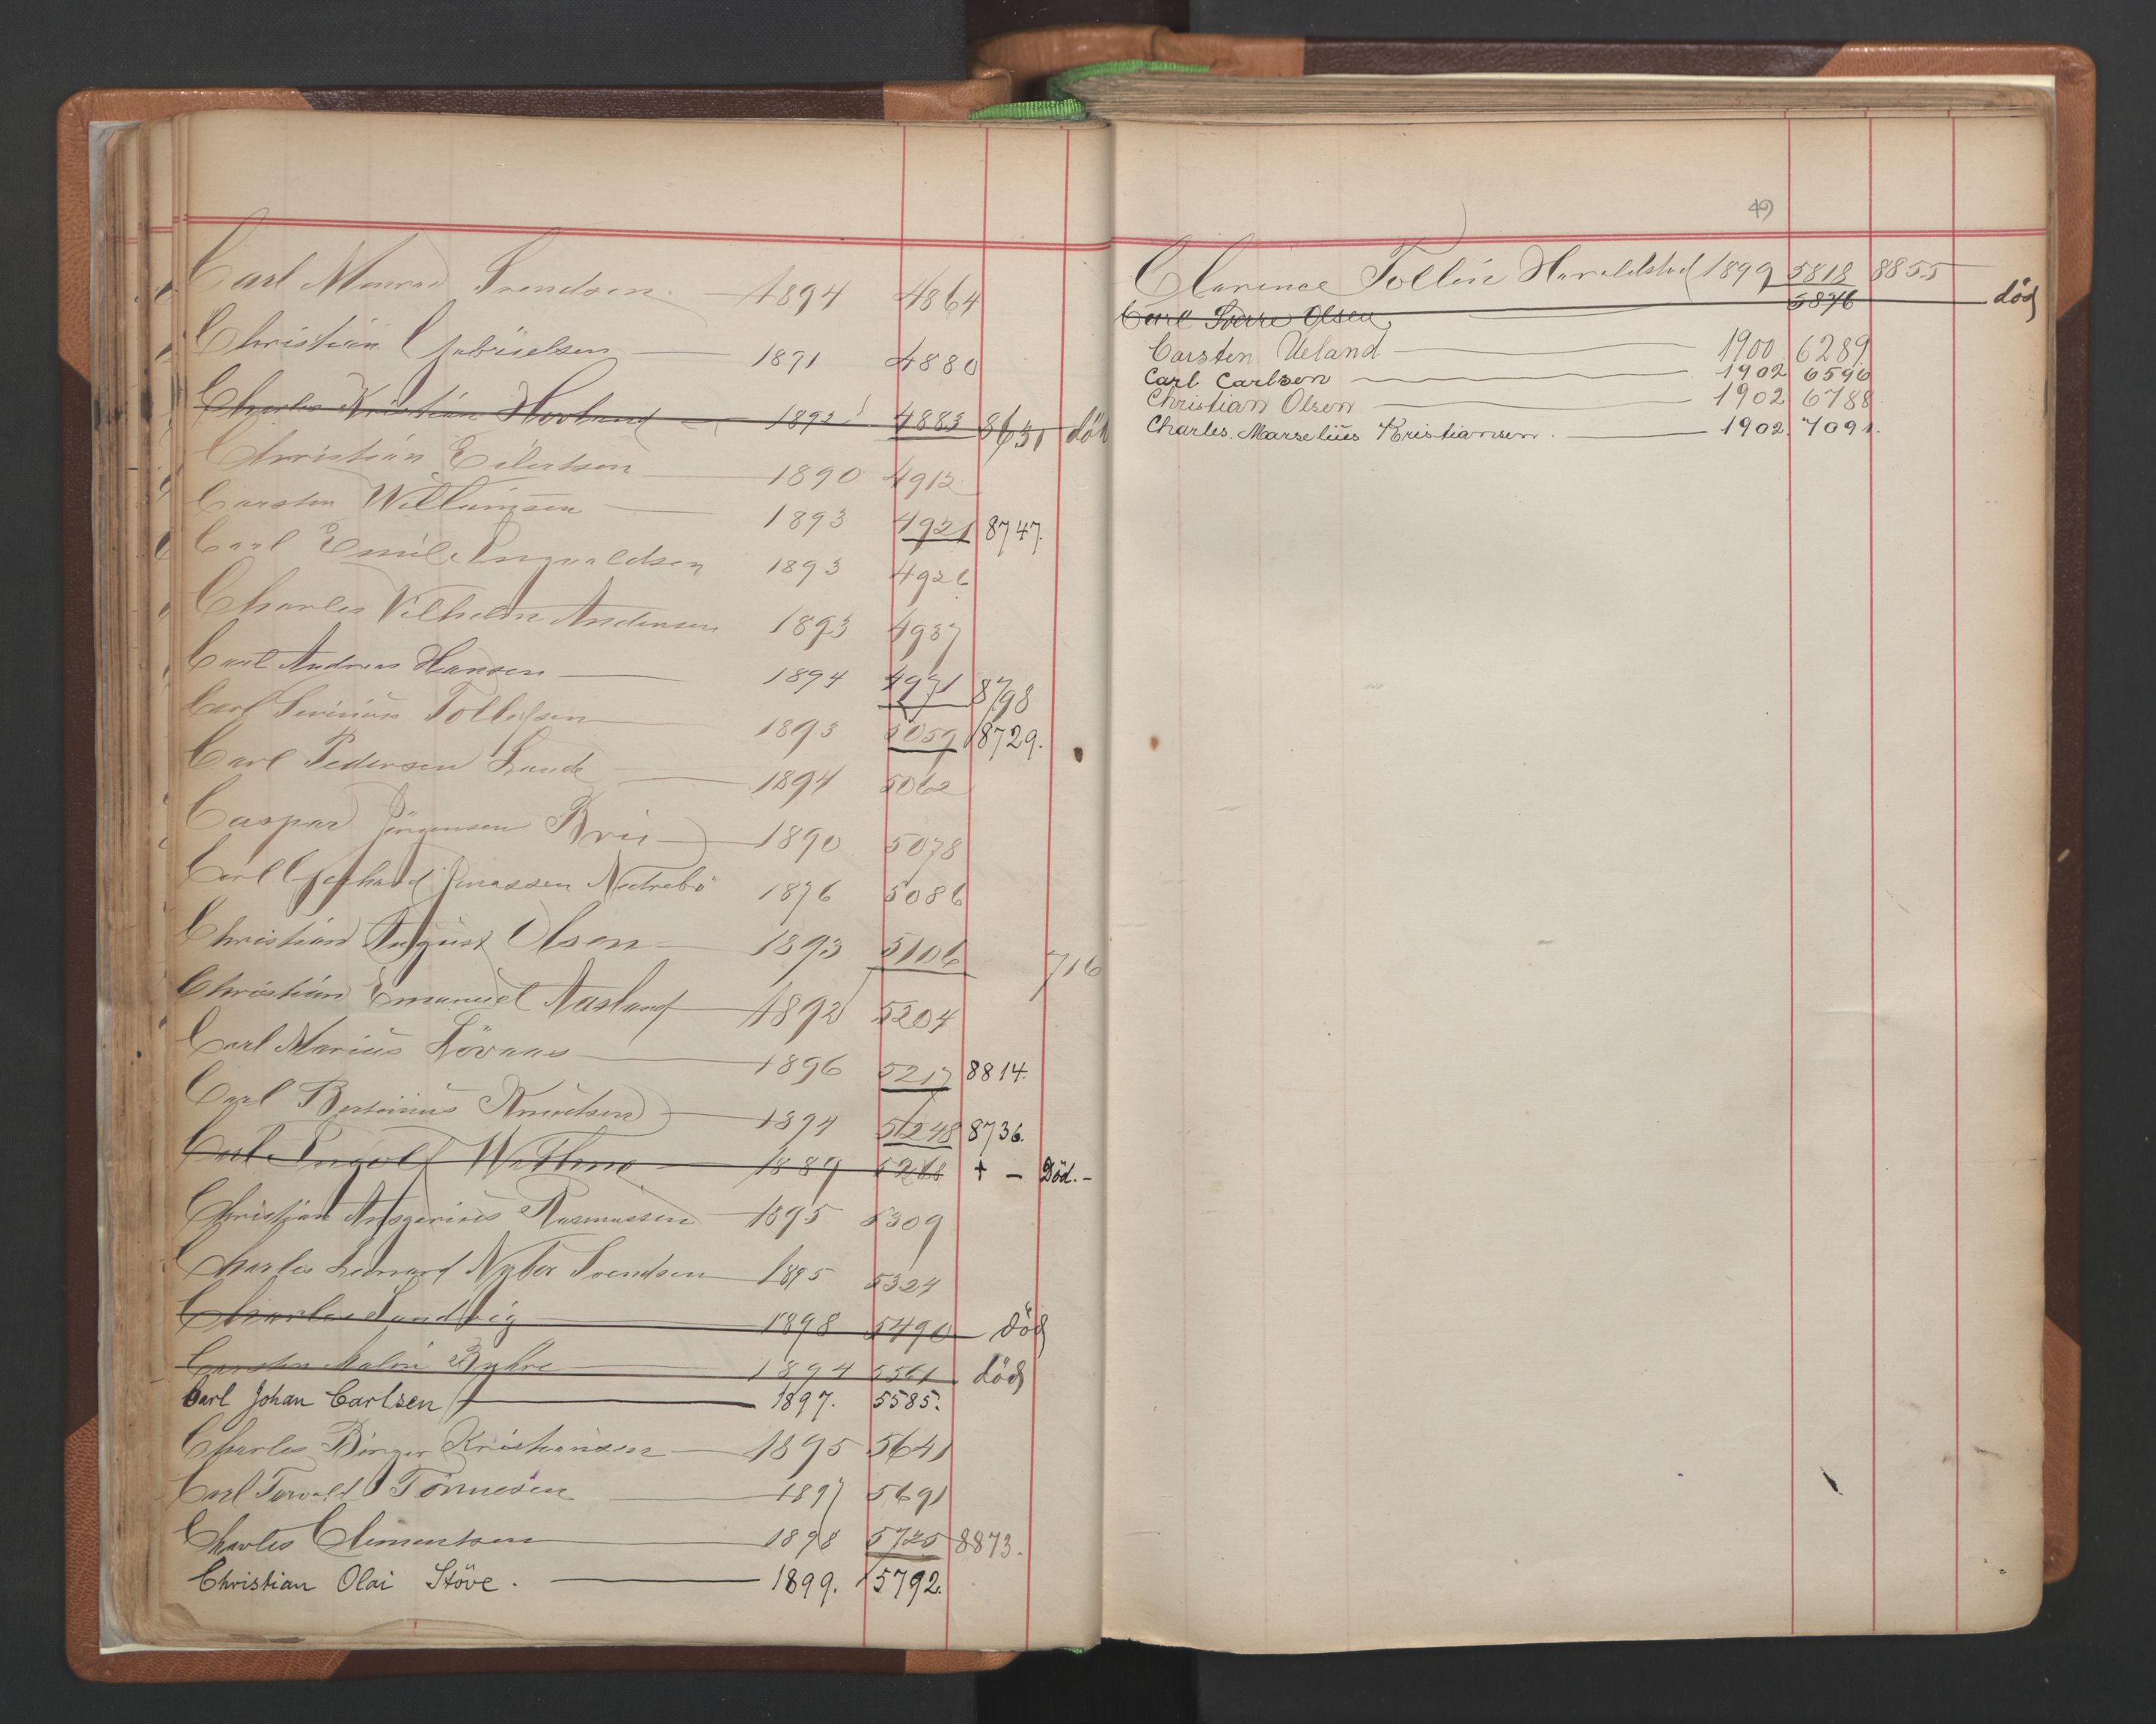 Carl Monrad Svendsen 1894 4864
Christian Gabrielsen 1891 4880
Charles Kristian Hovland 1892 4883 8631 död
Christian Eilertsen 1890 4912
Carsten Willumsen 1893 4921 8747.
Carl Emil Ingvaldsen 1893 4926
Charles Vilhelm Andersen 1893 4937
Carl Andreas Hansen 1894 4971 8798
Carl Sevinius Tollefsen 1893 5059 8729.
Carl Pedersen Lunde 1894 5062
Caspar Jörgensen Brii 1890 5078
Carl Gerhard Jonassen Nedrebö 1896 5086
Christian August Olsen 1893 5106 716
Christian Emanuel Aasland 1892 5204
Carl Marius Lövaas 1896 5217 8814.
Carl Bertinius Knudsen 1894 5248 8736.
Carl Ingolf Wathne 1889 5268 + - Död.-
Christian Ansgarius Rasmussen 1895 5309
Charles Leonard Nyber Svendsen 1895 5324
Charles Sundvig 1898 5490 död
Carsten Malvin Rykre 1894 5561 död
Carl Johan Carlsen 1897. 5585.
Charles Birger Kristiansen 1895 5641
Carl Torvald Tönnesen 1897 5691
Charles Clementsen 1898 5725 8873.
Christian Olai Stöve. 1899. 5792.
49
Clarence Tollin Haraldstad 1899 5818 8855
Carl Sverre Olsen 5876 död
Carsten Ueland 1900 6289.
Carl Carlsen 1902 6596
Christian Olsen 1902 6788.
Charles. Marselius Kristiansen. 1902. 7091.